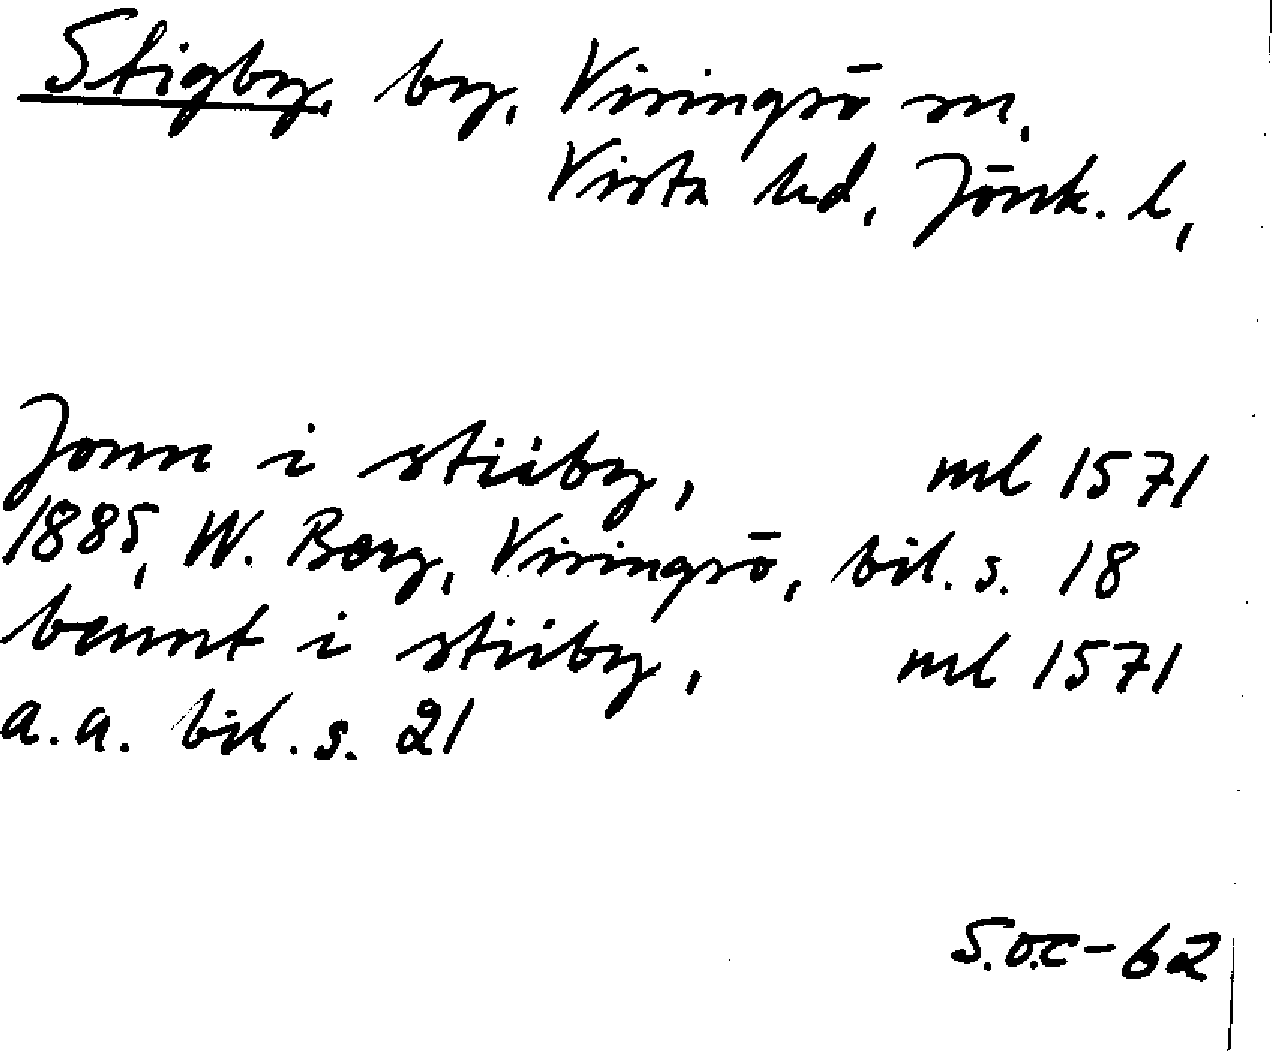 Stigby, by, Visingsö sn,
Vista hd, Jönk. l,
Jonn i stiiby, ml 1571
1885, W. Berg, Visingsö, bil. s. 18
bennt i stiiby, ml 1571
a.a. bil. s. 21
S.O.C-62